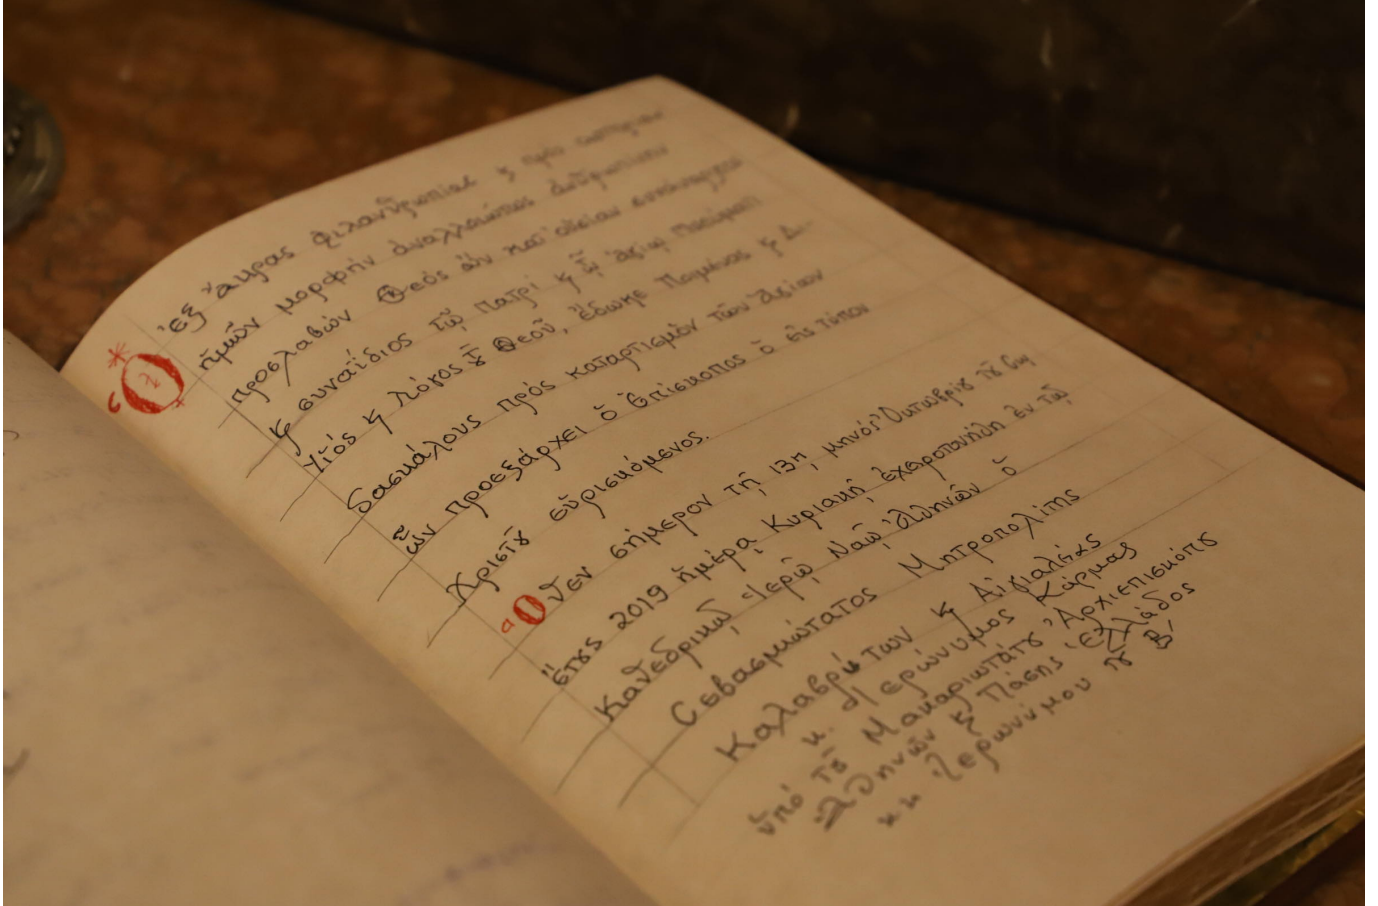 Ὁ ἐξ ἄκρας φιλανθρωπίας ϗ πρὸς σωτηρίαν
ἡμῶν μορφὴν ἀναλλοιώτως ἀνθρωπίνην
προσλαβὼν Θεὸς ὢν κατ' οὐσίαν συνάναρχος
ϗ συναΐδιος τῷ Πατρὶ ϗ τῷ Ἁγίῳ Πνεύματι
Υἱὸς ϗ Λόγος τȣ͂ Θεοῦ, ἔδωκε Ποιμένας ϗ Δι-
δασκάλους πρὸς καταρτισμὸν τῶν Ἁγίων
ὧν προεξάρχει ὁ Ἐπίσκοπος ὁ εἰς τύπον
Χριστȣ͂ εὑρισκόμενος.
Ὅθεν σήμερον τῇ 13ῃ, μηνὸς Ὀκτωβρίȣ τȣ͂ σωτ.
ἔτȣς 2019 ἡμέρᾳ Κυριακῇ ἐχειροτονήθη ἐν τῷ
Καθεδρικῷ Ἱερῷ Ναῷ Ἀθηνῶν ὁ
Σεβασμιώτατος Μητροπολίτης
Καλαβρύτων ϗ Αἰγιαλείας
κ. Ἱερώνυμος Κάρμας
ὑπὸ τȣ͂ Μακαριωτάτȣ Ἀρχιεπισκόπȣ
Ἀθηνῶν ϗ Πάσης Ἑλλάδος
κ.κ Ἱερωνύμου τȣ͂ Β΄